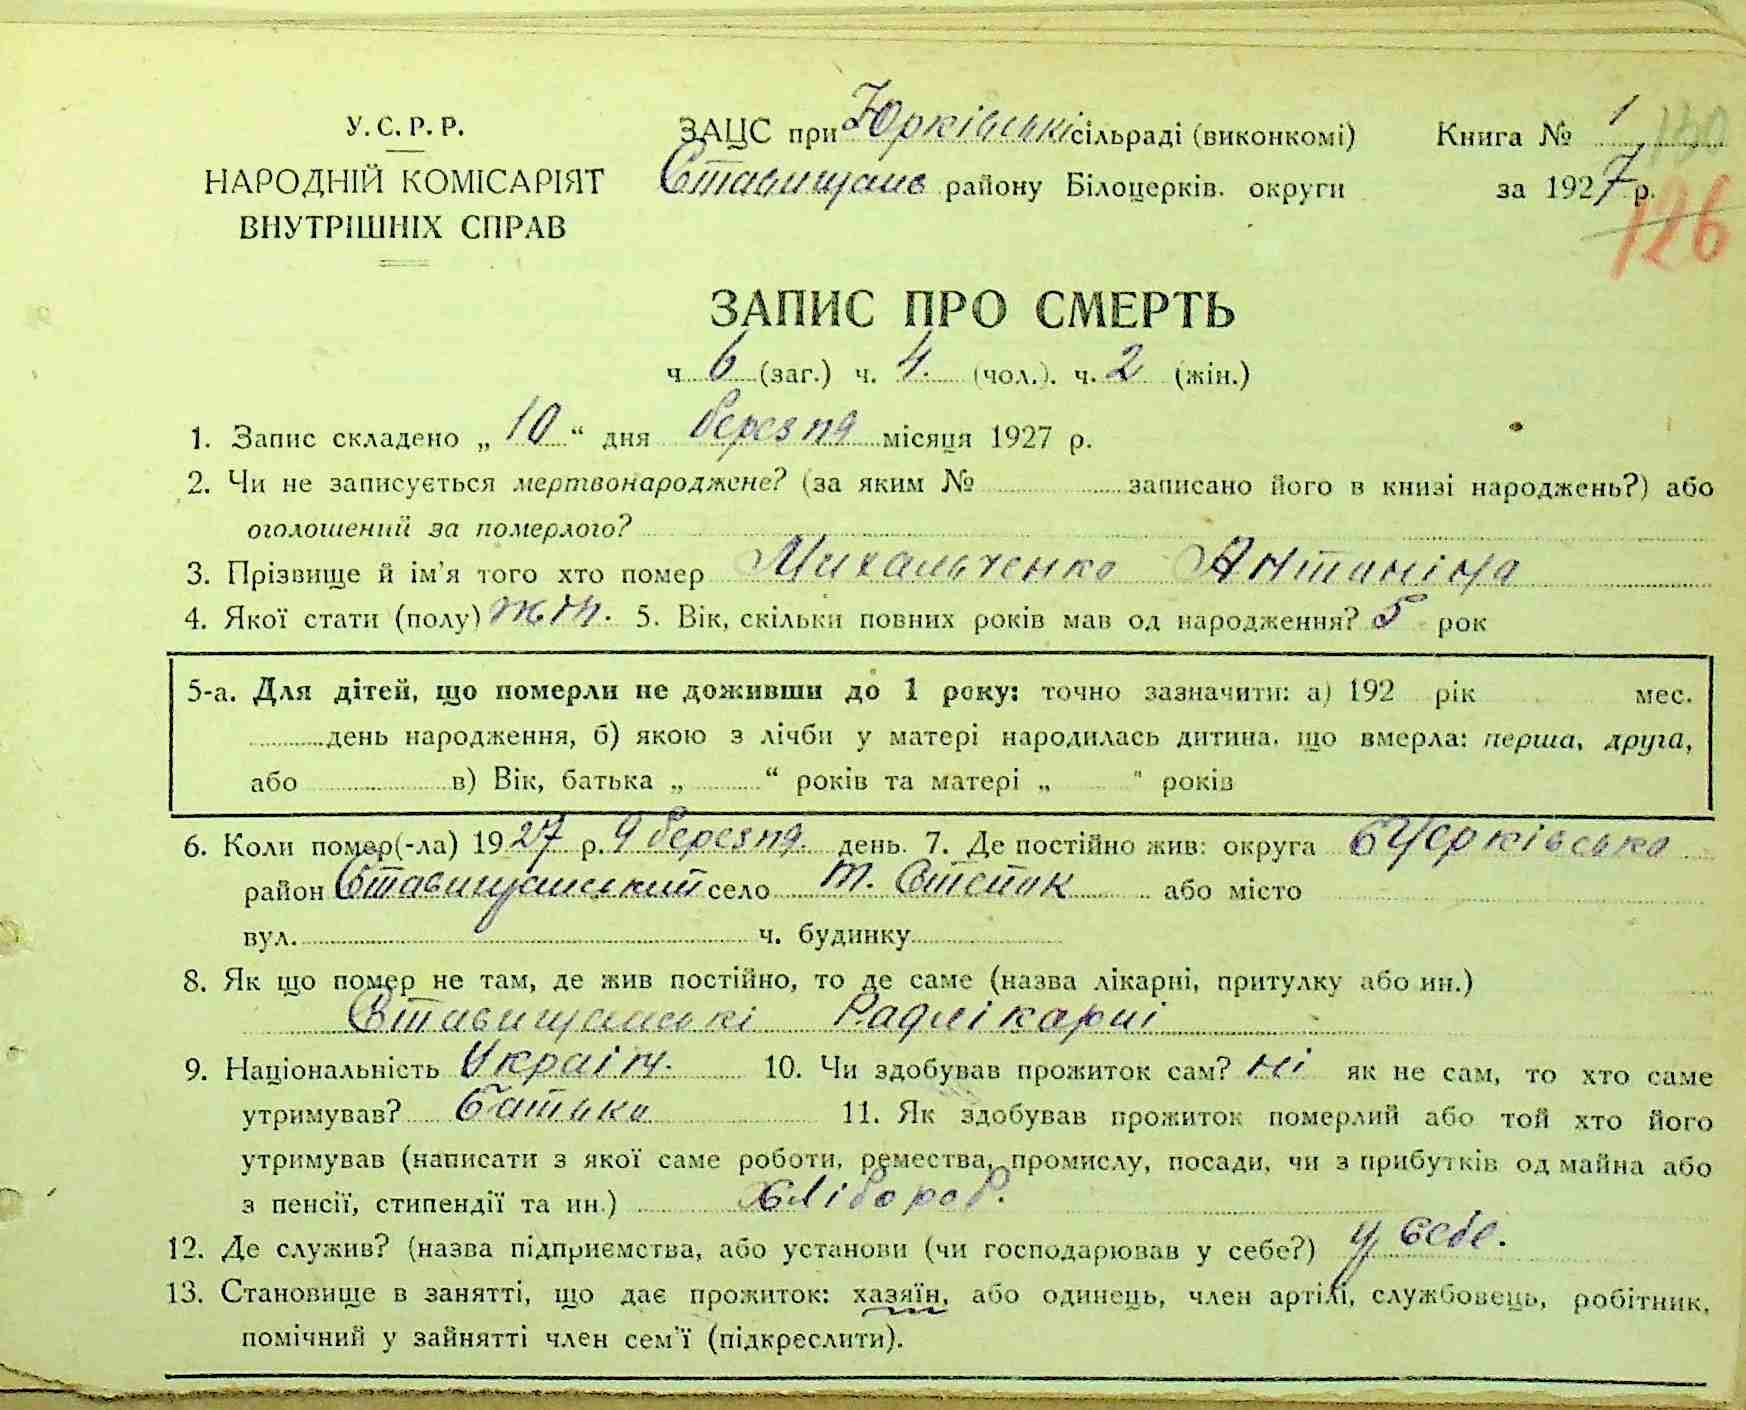 У. С. Р. Р.
НАРОДНІЙ КОМІСАРІЯТ
ВНУТРІШНІХ СПРАВ
ЗАЦС при Юрківські сільраді (виконкомі)
Ставищанс району Білоцерків. округи
Книга № 1 130
за 1927 р.
126
ЗАПИС ПРО СМЕРТЬ
ч 6 (заг.) ч. 4. (чол.). ч. 2 (жін.)
1. Запис складено „ 10 “ дня березня місяця 1927 р.
2. Чи не записується мертвонароджене? (за яким № записано його в книзі народжень?) або
оголошений за померлого?
3. Прізвище й ім'я того хто помер Михальченко Антаніна
4. Якої стати (полу) жін. 5. Вік, скільки повних років мав од народження? 5 рок
5-а. Для дітей, що померли не доживши до 1 року: точно зазначити: а) 192 рік мес.
день народження, б) якою з лічби у матері народилась дитина, що вмерла: перша, друга,
або в) Вік, батька „ “ років та матері „ " років
6. Коли помер(-ла) 1927 р. 9 березня. день. 7. Де постійно жив: округа БЦерківська
район Ставищанський село Т. Степок або місто
вул. ч. будинку
8. Як що помер не там, де жив постійно, то де саме (назва лікарні, притулку або ин.)
Ставищанські Райлікарні
9. Національність Украін. 10. Чи здобував прожиток сам? ні як не сам, то хто саме
утримував? Батько 11. Як здобував прожиток померлий або той хто його
утримував (написати з якої саме роботи, ремества, промислу, посади, чи з прибутків од майна або
з пенсії, стипендії та ин.) хлібороб.
12. Де служив? (назва підприємства, або установи (чи господарював у себе?) у себе.
13. Становище в занятті, що дає прожиток: хазяїн, або одинець, член артілі, службовець, робітник,
помічний у зайнятті член сем'ї (підкреслити).